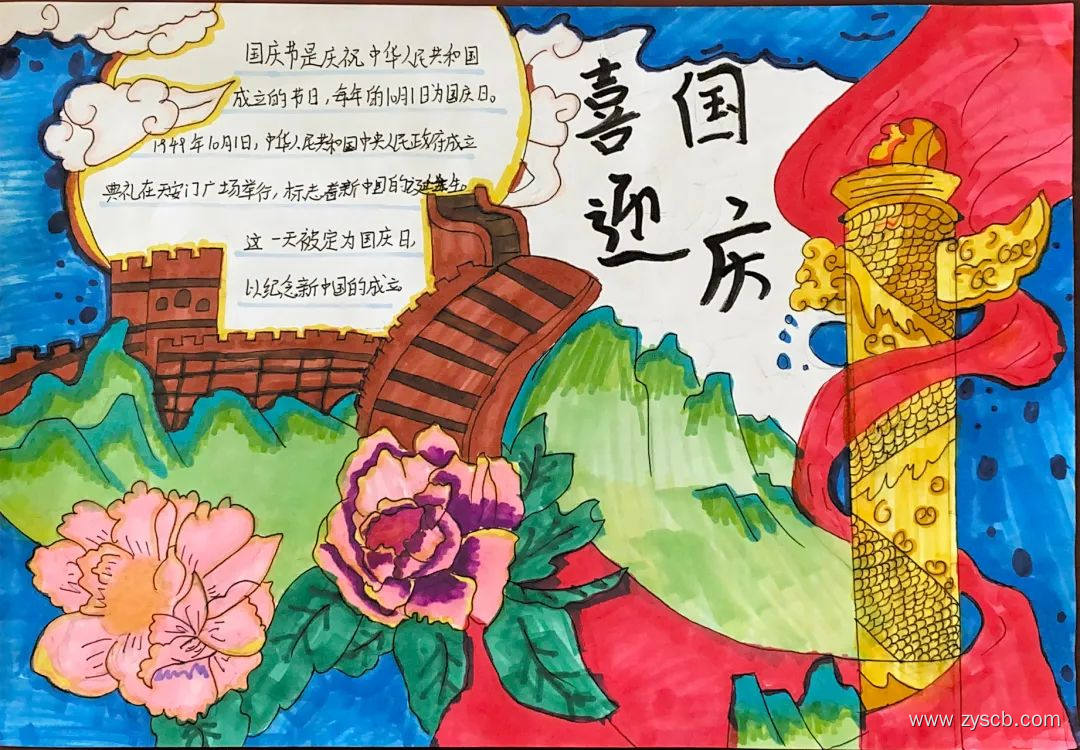 国庆节是庆祝中华人民共和国
成立的节日，每年的10月1日为国庆日。
1949年10月1日，中华人民共和国中央人民政府成立
典礼在天安门广场举行，标志着新中国的诞生。
这一天被定为国庆日，
以纪念新中国的成立
喜迎
国庆
www.zyscb.com